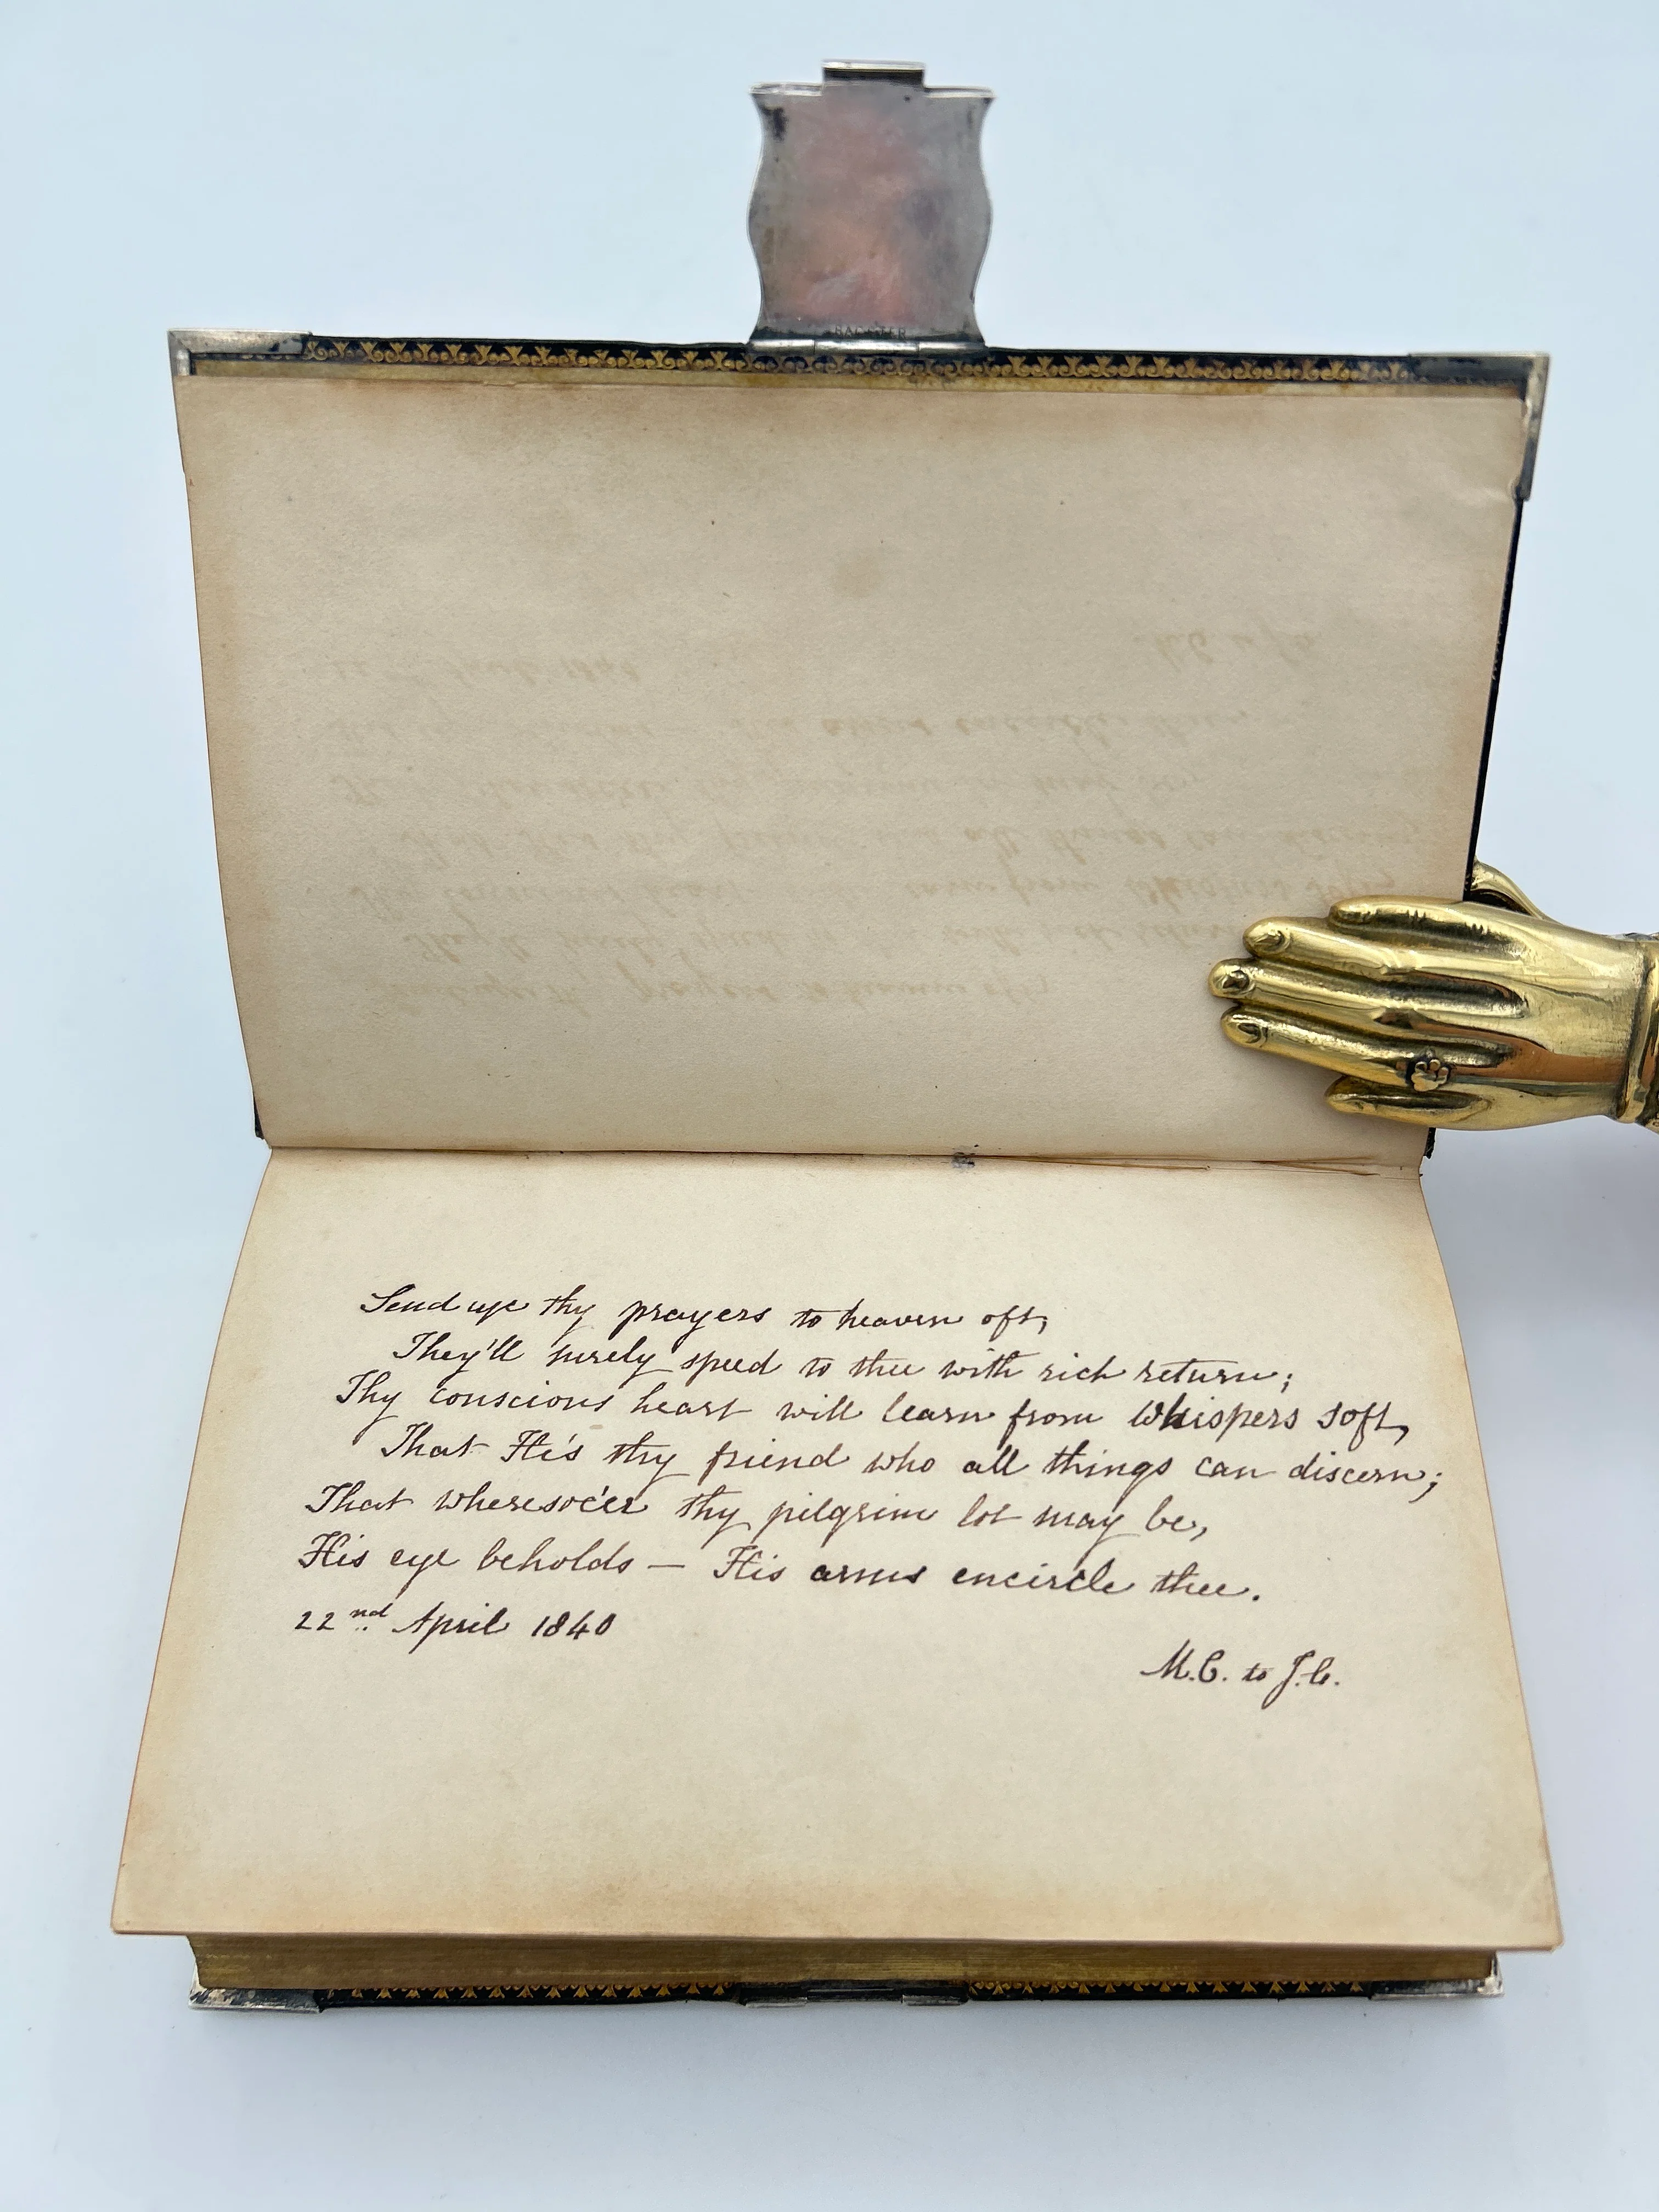 BAGSTER
Send up thy prayers to heaven oft,
They'll surely speed to thee with rich return;
Thy conscious heart will learn from Whispers soft,
That He's thy friend who all things can discern;
That wheresoe'er thy pilgrim lot may be,
His eye beholds — His arms encircle thee.
22nd April 1840
M.C. to J.C.